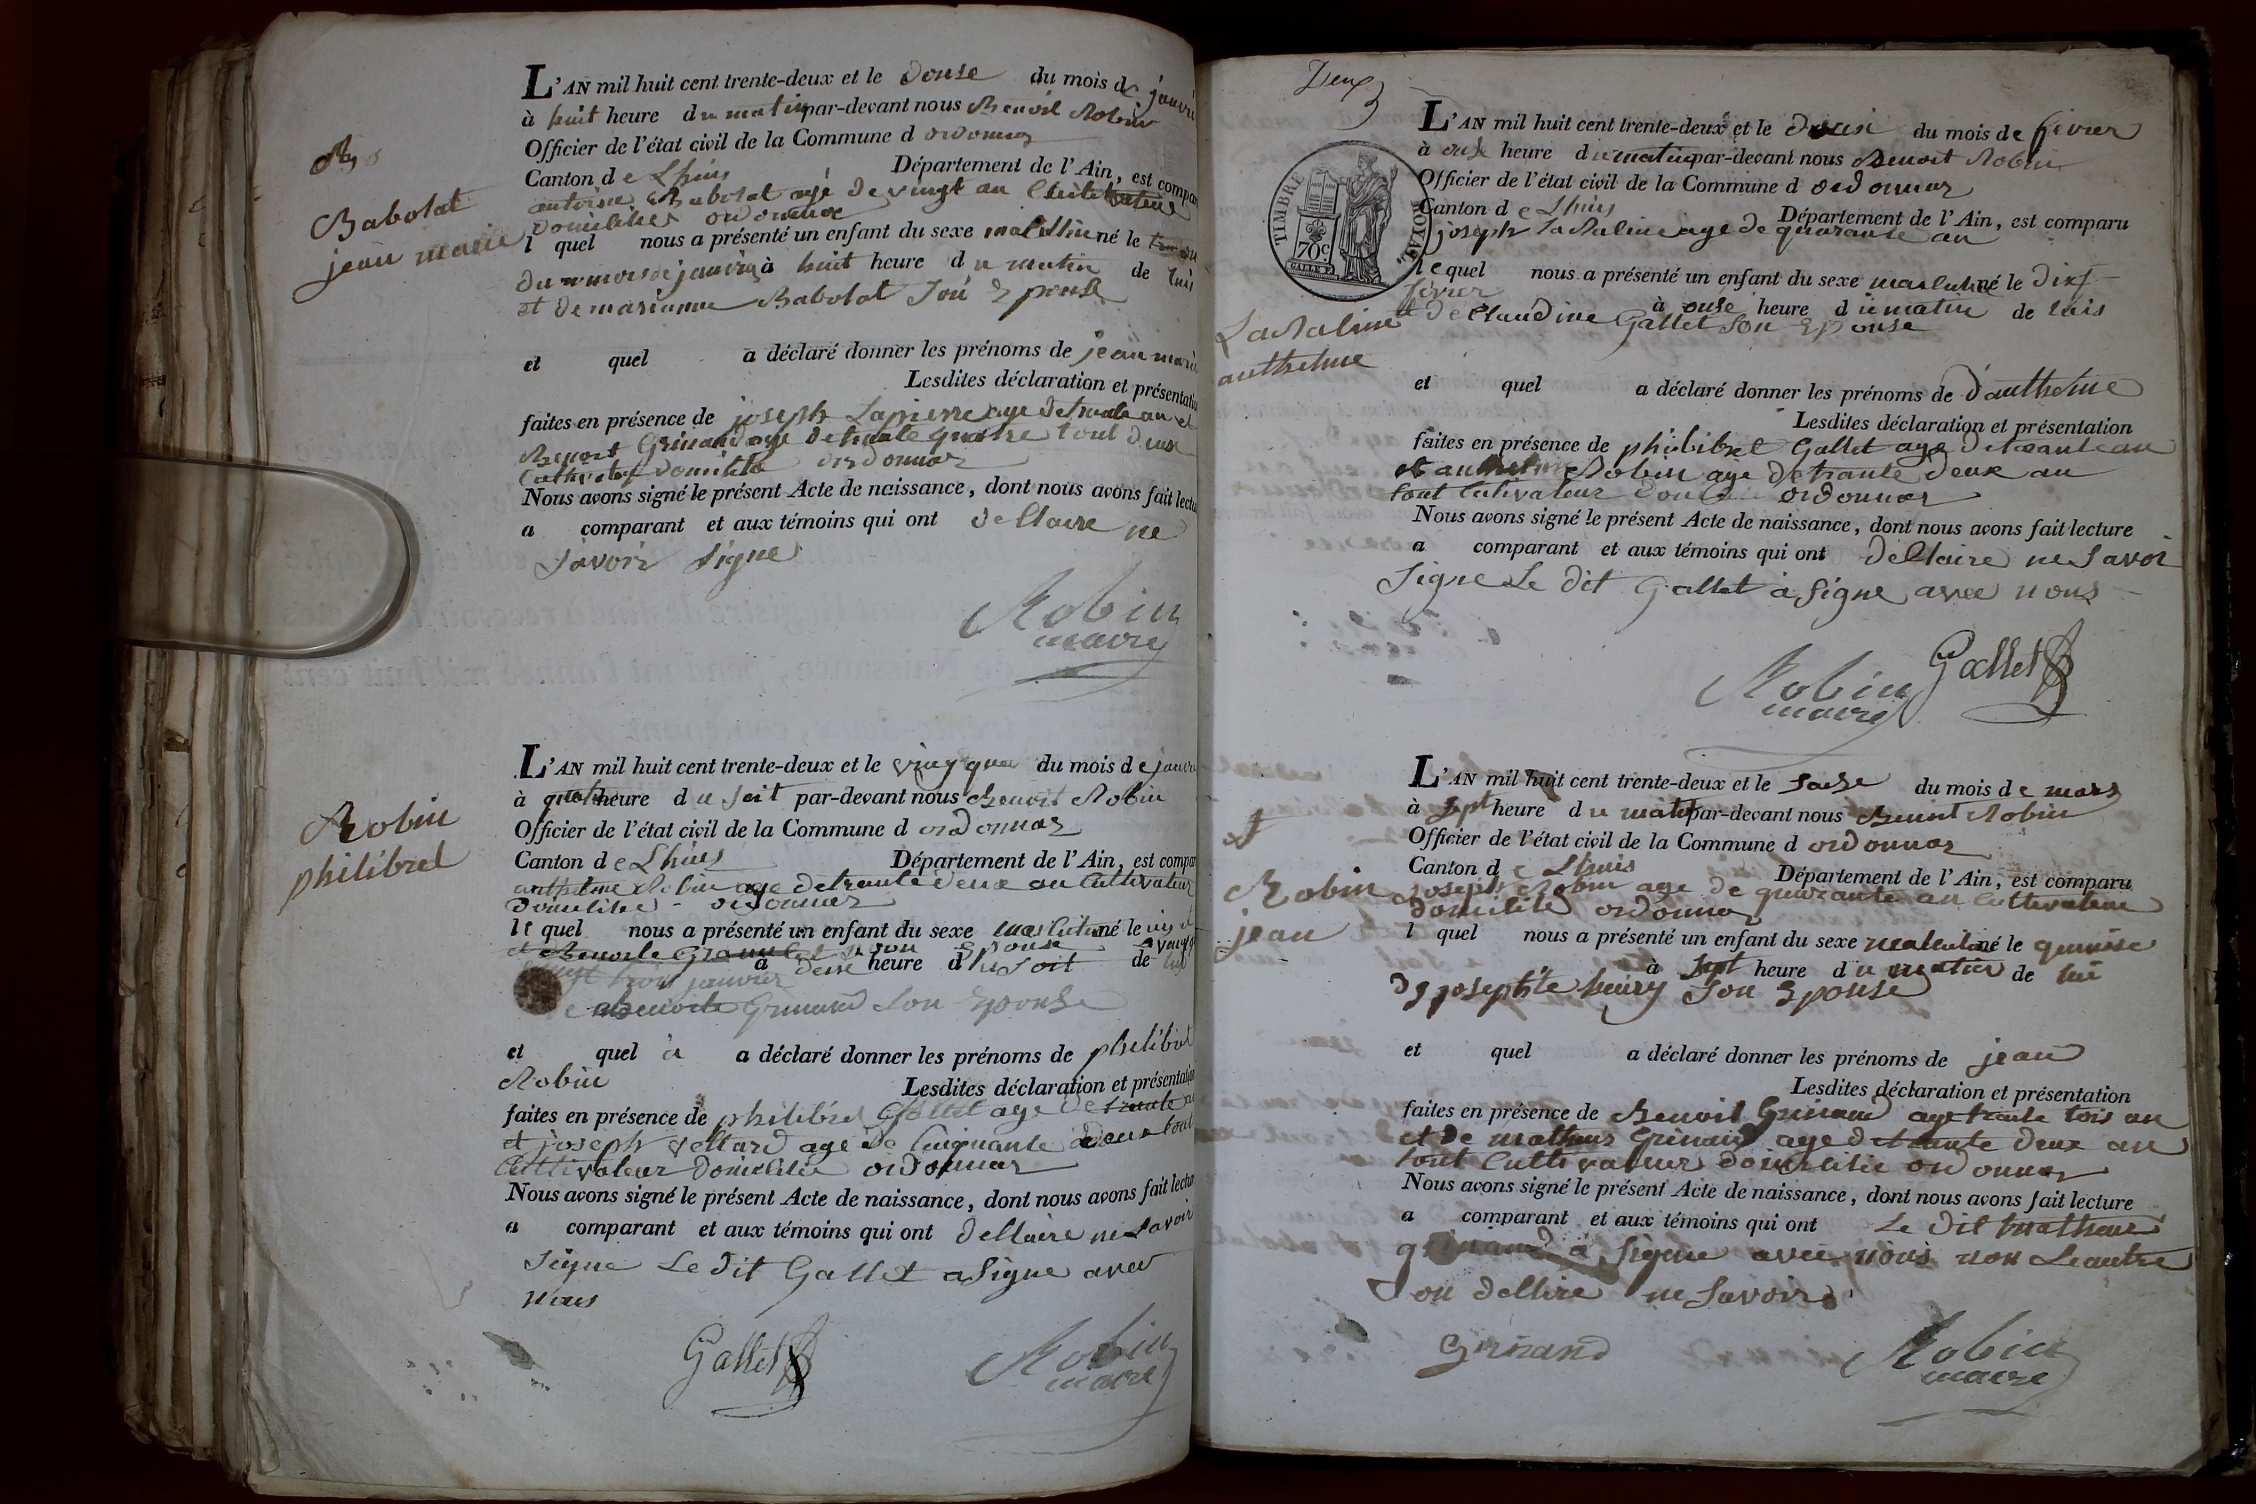 L'AN mil huit cent trente-deux et le douse du mois de janvi
à huit heure du matin par-devant nous Benoit Robin
Officier de l'état civil de la Commune d ordonnaz
Canton de Lhuis Département de l'Ain, est compar
antoine Babolat agé de vingt an Cultivateur
domicilié ordonnaz
Babolat
jean marie
l quel nous a présenté un enfant du sexe né le
du mois de janvier à huit heure du matin de lui
et de marianne Babolat Son Epouse
et quel a déclaré donner les prénoms de jean marie
Lesdites déclaration et présentation
faites en présence de joseph Lapierre age de trante an et
Benoit Grinand age de trante quatre tout deux
domicilie ordonnaz
Nous avons signé le présent Acte de naissance, dont nous avons fait lectu
a comparant et aux témoins qui ont dellaire ne
Savoir Signe
Robin
maire
L'AN mil huit cent trente-deux et le du mois de janvi
à heure du Soit par-devant nous Benoit Robin
Officier de l'état civil de la Commune d ordonnaz
Robin
philibrel
Canton de Lhuis Département de l'Ain, est compar
anthelme Robin age de trante deux an Cultivateur
domicilie ordonnaz
le quel nous a présenté un enfant du sexe né le
et Benoite Son Epouse
à heure du Soit de lui
janvier
Benoite Grinand Son Epouse
et quel à a déclaré donner les prénoms de philibrel
Robin
Lesdites déclaration et présentation
faites en présence de philibrel Gallet age de trante an
et joseph Vettard age de Cinquante deux tout
Cultivateur domicilie ordonnaz
Nous avons signé le présent Acte de naissance, dont nous avons fait lectu
a comparant et aux témoins qui ont dellaire ne Savoir
Signe Le dit Gallet a Signe avec
nous
Gallet
Robin
maire
Deux
L'AN mil huit cent trente-deux et le du mois de fevrier
à onse heure du matin par-devant nous Benoit Robin
Officier de l'état civil de la Commune d ordonnaz
TIMBRE ROYAL
70c
Canton de Lhuis Département de l'Ain, est comparu
joseph LaRaline age de quarante an
le quel nous a présenté un enfant du sexe né le dix
fevrier
à onse heure du matin de luis
et de Claudine Gallet Son Epouse
LaRaline
anthelme
et quel a déclaré donner les prénoms de d'anthelme
Lesdites déclaration et présentation
faites en présence de philibrel Gallet age de trante an
et anthelme Robin age de trante deux an
tout Cultivateur ordonnaz
Nous avons signé le présent Acte de naissance, dont nous avons fait lecture
a comparant et aux témoins qui ont dellaire ne Savoi
Signe Le dit Gallet à Signe avec nous
Gallet
Robin
maire
L'AN mil huit cent trente-deux et le Saise du mois de mars
à Sept heure du matin par-devant nous Benoit Robin
Officier de l'état civil de la Commune d ordonnaz
Canton de Lhuis Département de l'Ain, est comparu
Robin
jean
joseph Robin age de quarante an Cultivateur
domicilié ordonnaz
l quel nous a présenté un enfant du sexe né le quinise
à Sept heure du matin de lui
de josephte henry Son Epouse
et quel a déclaré donner les prénoms de jean
Lesdites déclaration et présentation
faites en présence de Benoit Grinand age trante tois an
et de mathieu Grinand age de trante deux an
tout Cultivateur domicilie ordonnaz
Nous avons signé le présent Acte de naissance, dont nous avons fait lecture
a comparant et aux témoins qui ont Le dit mathieu
grinand à Signe avec nous non Leautre
on dellire ne Savoir
Grinand
Robin
maire